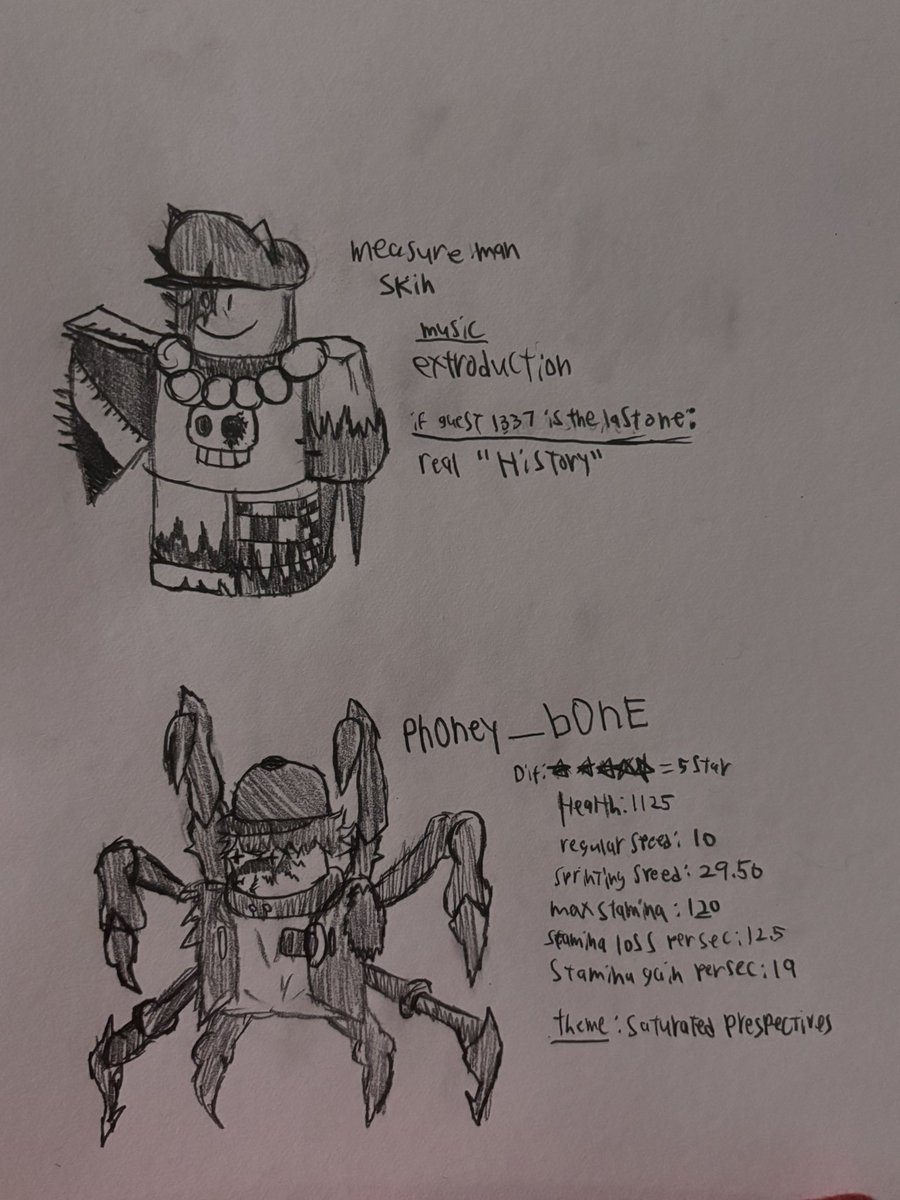 measure man
skin
music
extroduction
if guest 1337 is the last one:
real "History"
Ph0ney_b0nE
Dif: = 5 star
Health: 1125
regular speed: 10
sprinting speed: 29.50
max stamina: 120
stamina loss per sec: 12.5
Stamina gain per sec: 19
theme: saturated prespectives